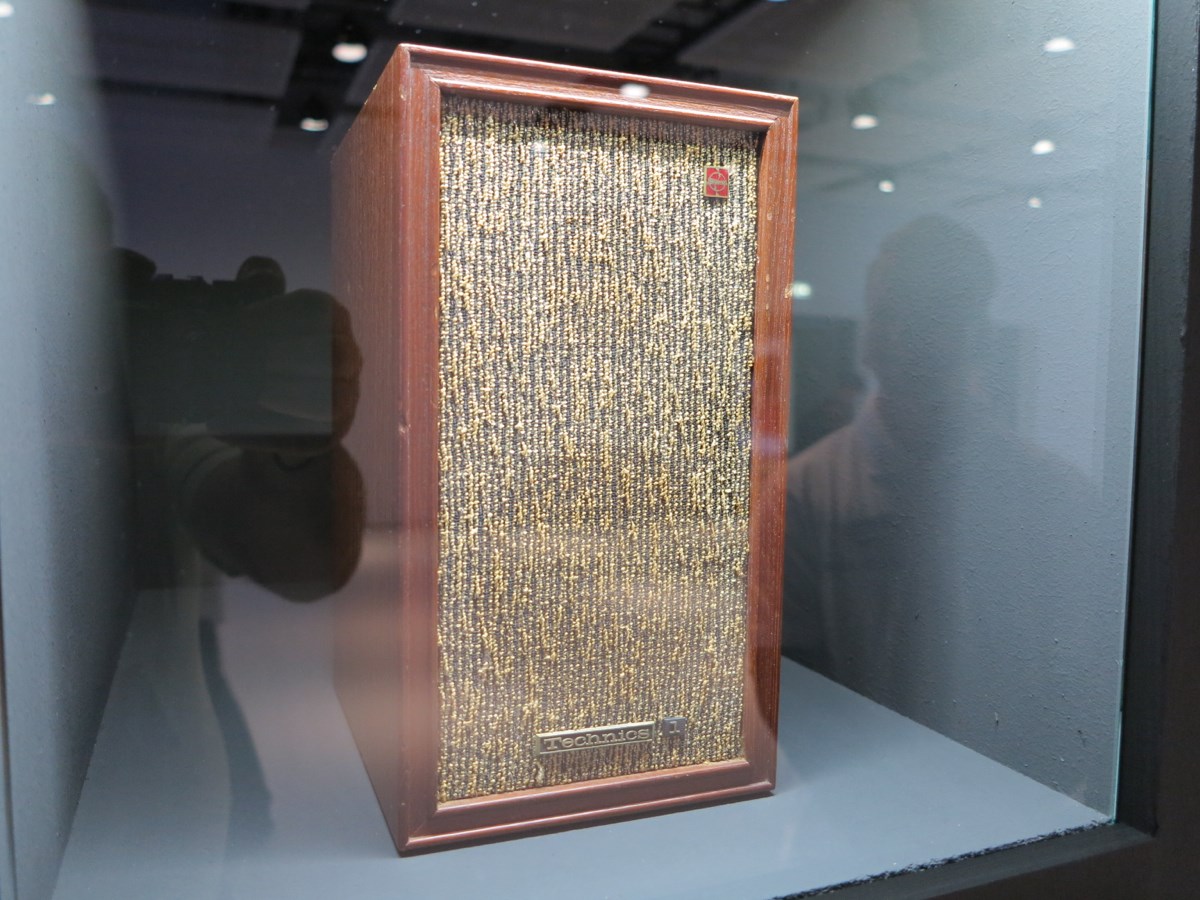 Technics 1